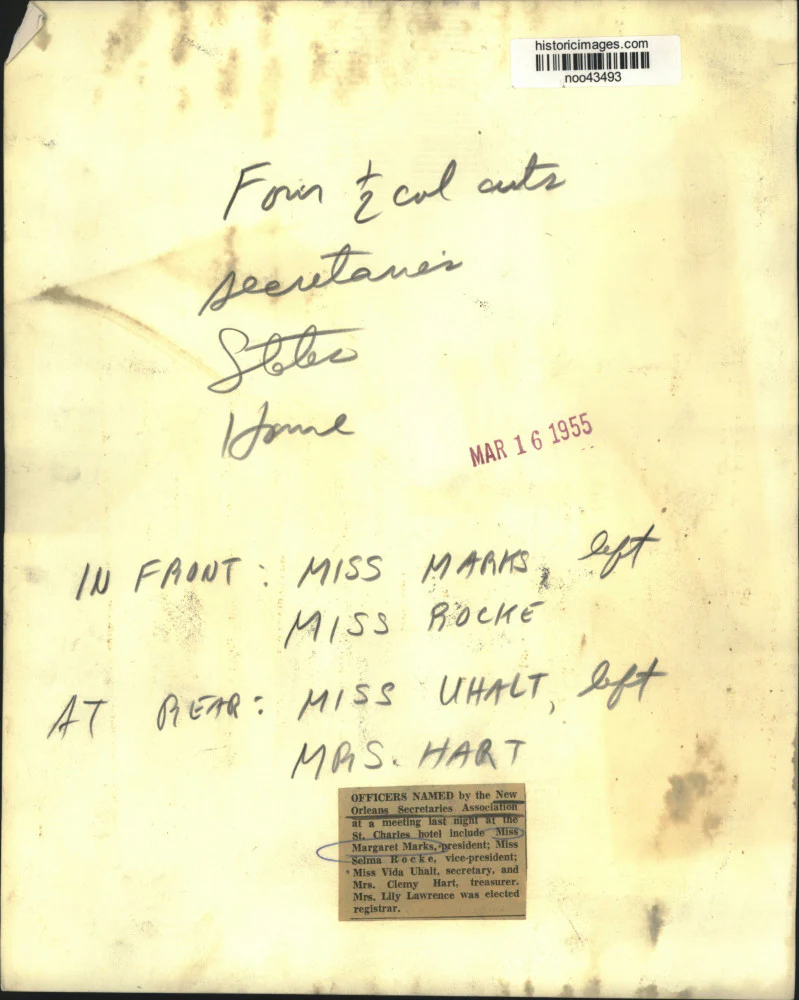 historicimages.com
noo43493
Four 1/2 col cuts
secretaries
States
Home
MAR 16 1955
IN FRONT: MISS MARKS, left
MISS ROCKE
AT REAR: MISS UHALT, left
MRS. HART
OFFICERS NAMED by the New
Orleans Secretaries Association
at a meeting last night at the
St. Charles hotel include Miss
Margaret Marks, president; Miss
Selma Rocke, vice-president;
Miss Vida Uhalt, secretary, and
Mrs. Clemy Hart, treasurer.
Mrs. Lily Lawrence was elected
registrar.